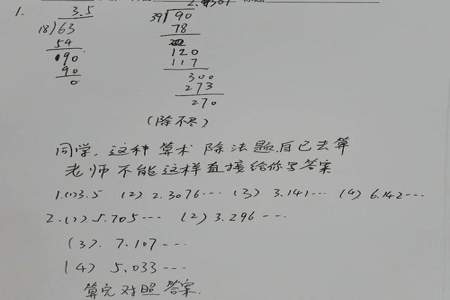 1.
3.5
18)63
54
90
90
0
39)90
78
120
117
300
273
270
(除不尽)
同学,这种算术除法题自己去算
老师不能这样直接给你写答案
1.(1)3.5 (2) 2.3076… (3) 3.141… (4) 6.142…
2.(1) 5.705… (2) 3.296…
(3). 7.107…
(4) 5.033…
算完对照答案.